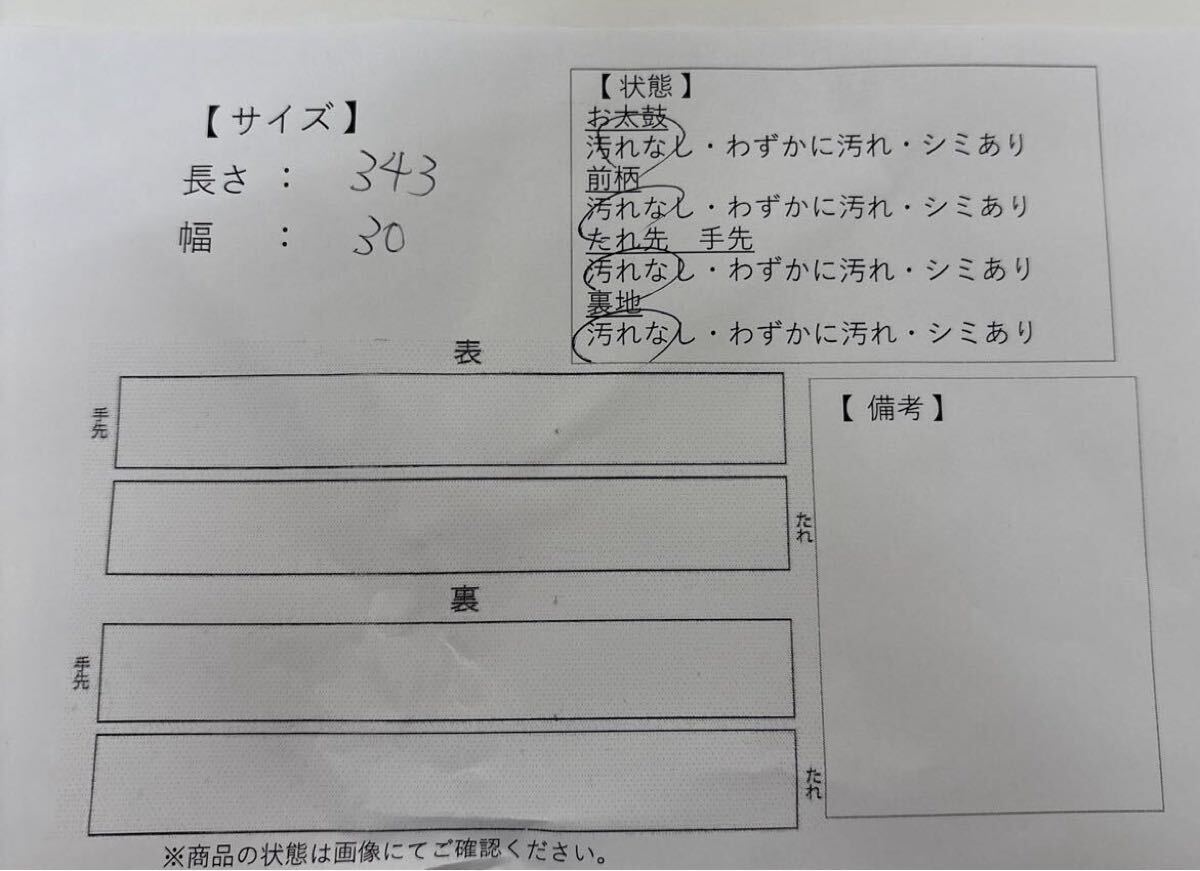 【サイズ】
長さ : 343
幅 : 30
【状態】
お太鼓
汚れなし・わずかに汚れ・シミあり
前柄
汚れなし・わずかに汚れ・シミあり
たれ先 手先
汚れなし・わずかに汚れ・シミあり
裏地
汚れなし・わずかに汚れ・シミあり
表
手先
たれ
裏
手先
たれ
【備考】
※商品の状態は画像にてご確認ください。